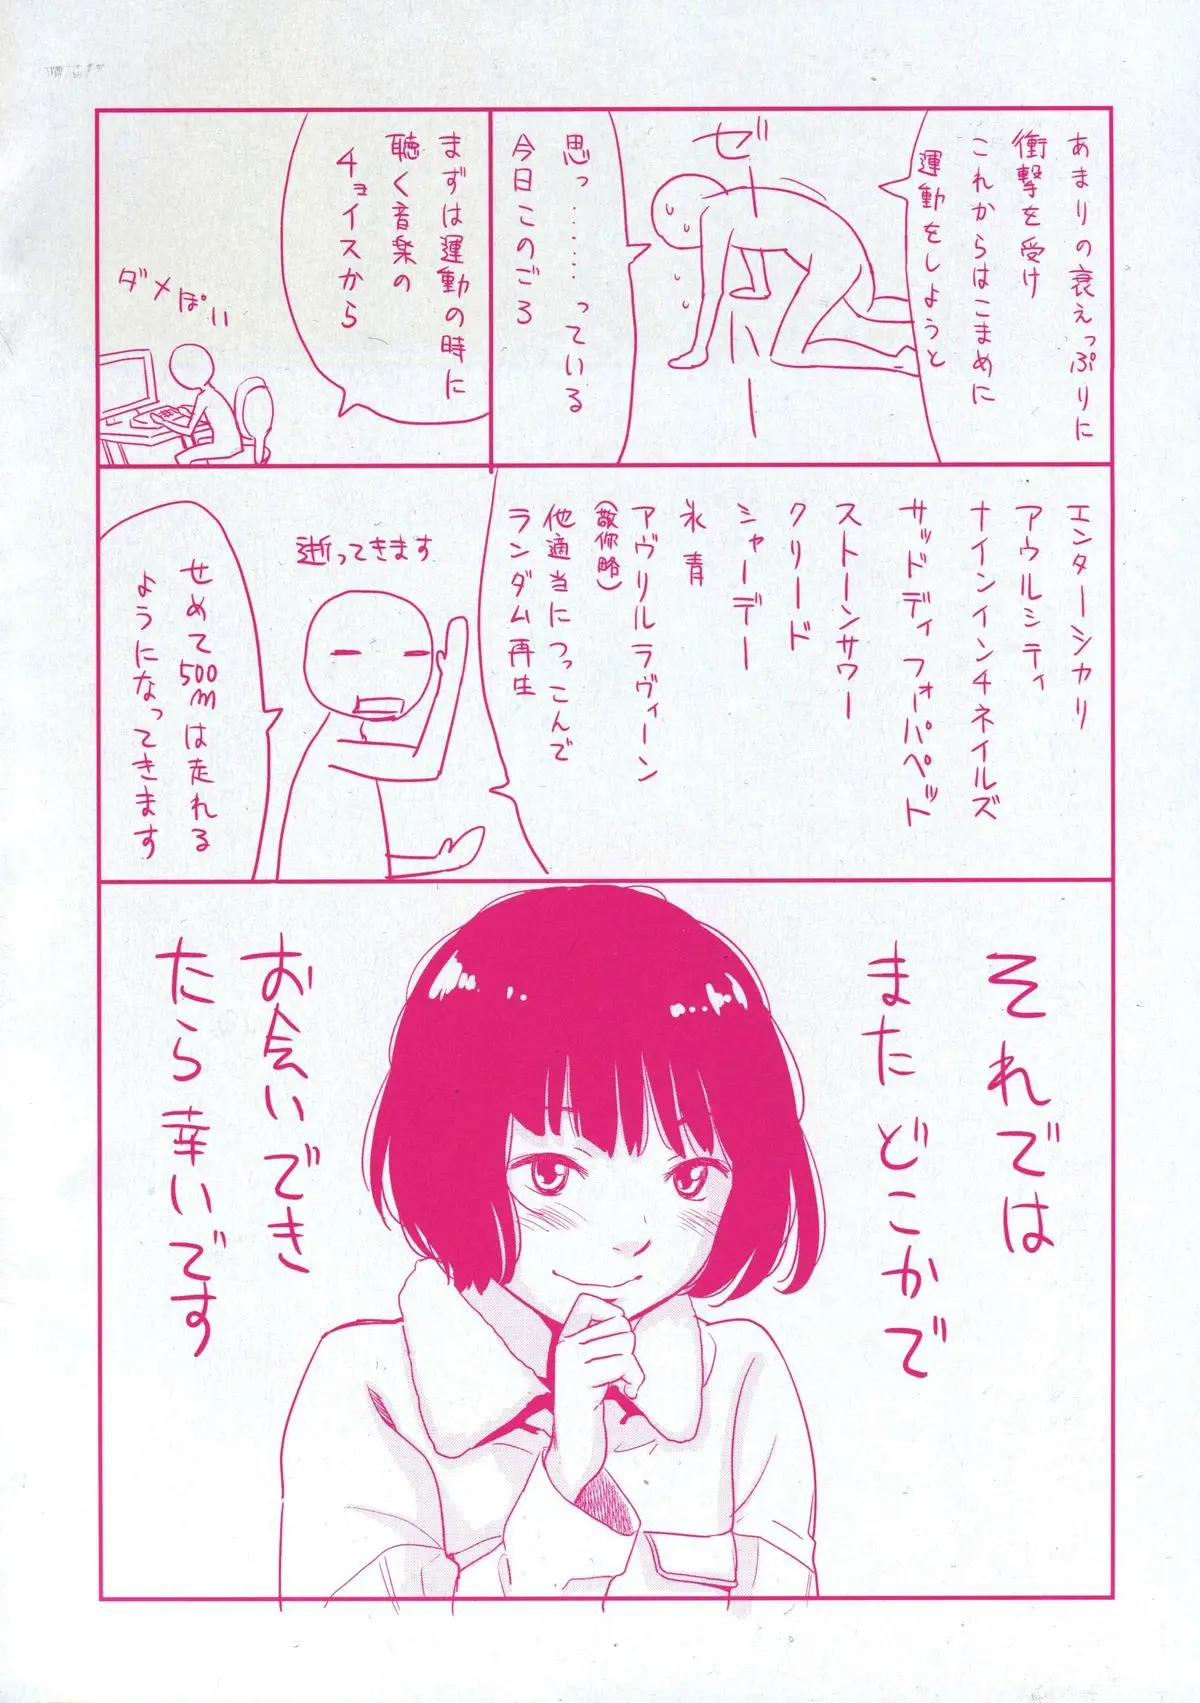 あまりの衰えっぷりに
衝撃を受け
これからはこまめに
運動をしようと
ゼーハー
思っ………っている
今日このごろ
まずは運動の時に
聴く音楽の
チョイスから
ダメぽい
エンターシカリ
アウルシティ
ナインインチネイルズ
サッドディフォーパペット
ストーンサワー
クリード
シャーデー
氷青
アヴリルラヴィーン
(敬称略)
他適当につっこんで
ランダム再生
逝ってきます
せめて500mは走れる
ようになってきます
それでは
またどこかで
お会いでき
たら幸いです